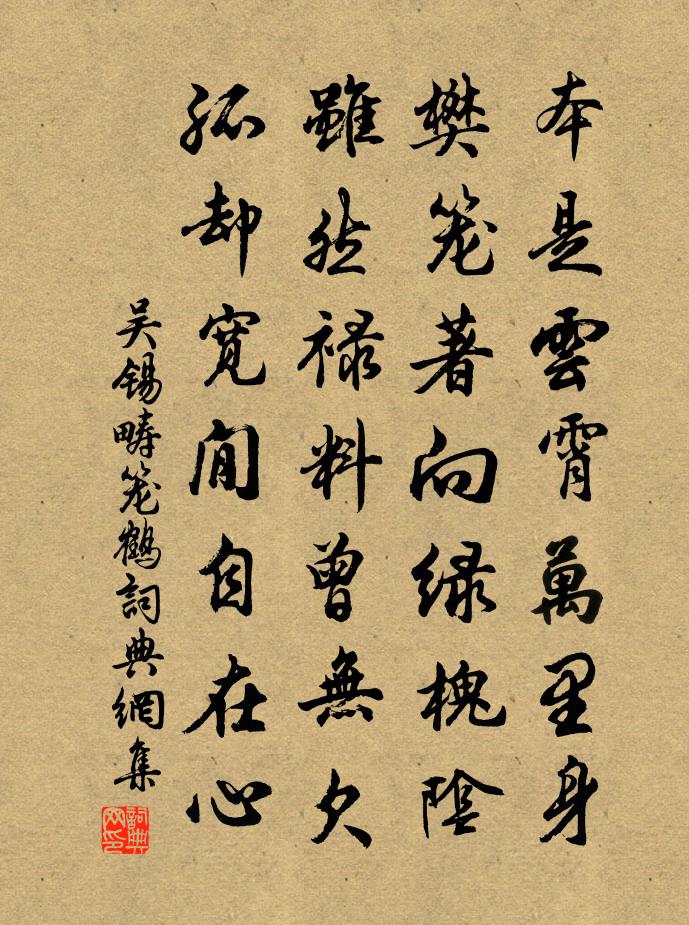 本是雲霄萬里身
樊笼著向绿槐陰
雖然禄料曾無欠
孤却寬閒自在心
吴锡疇笼鶴詞典網集
詞典网印